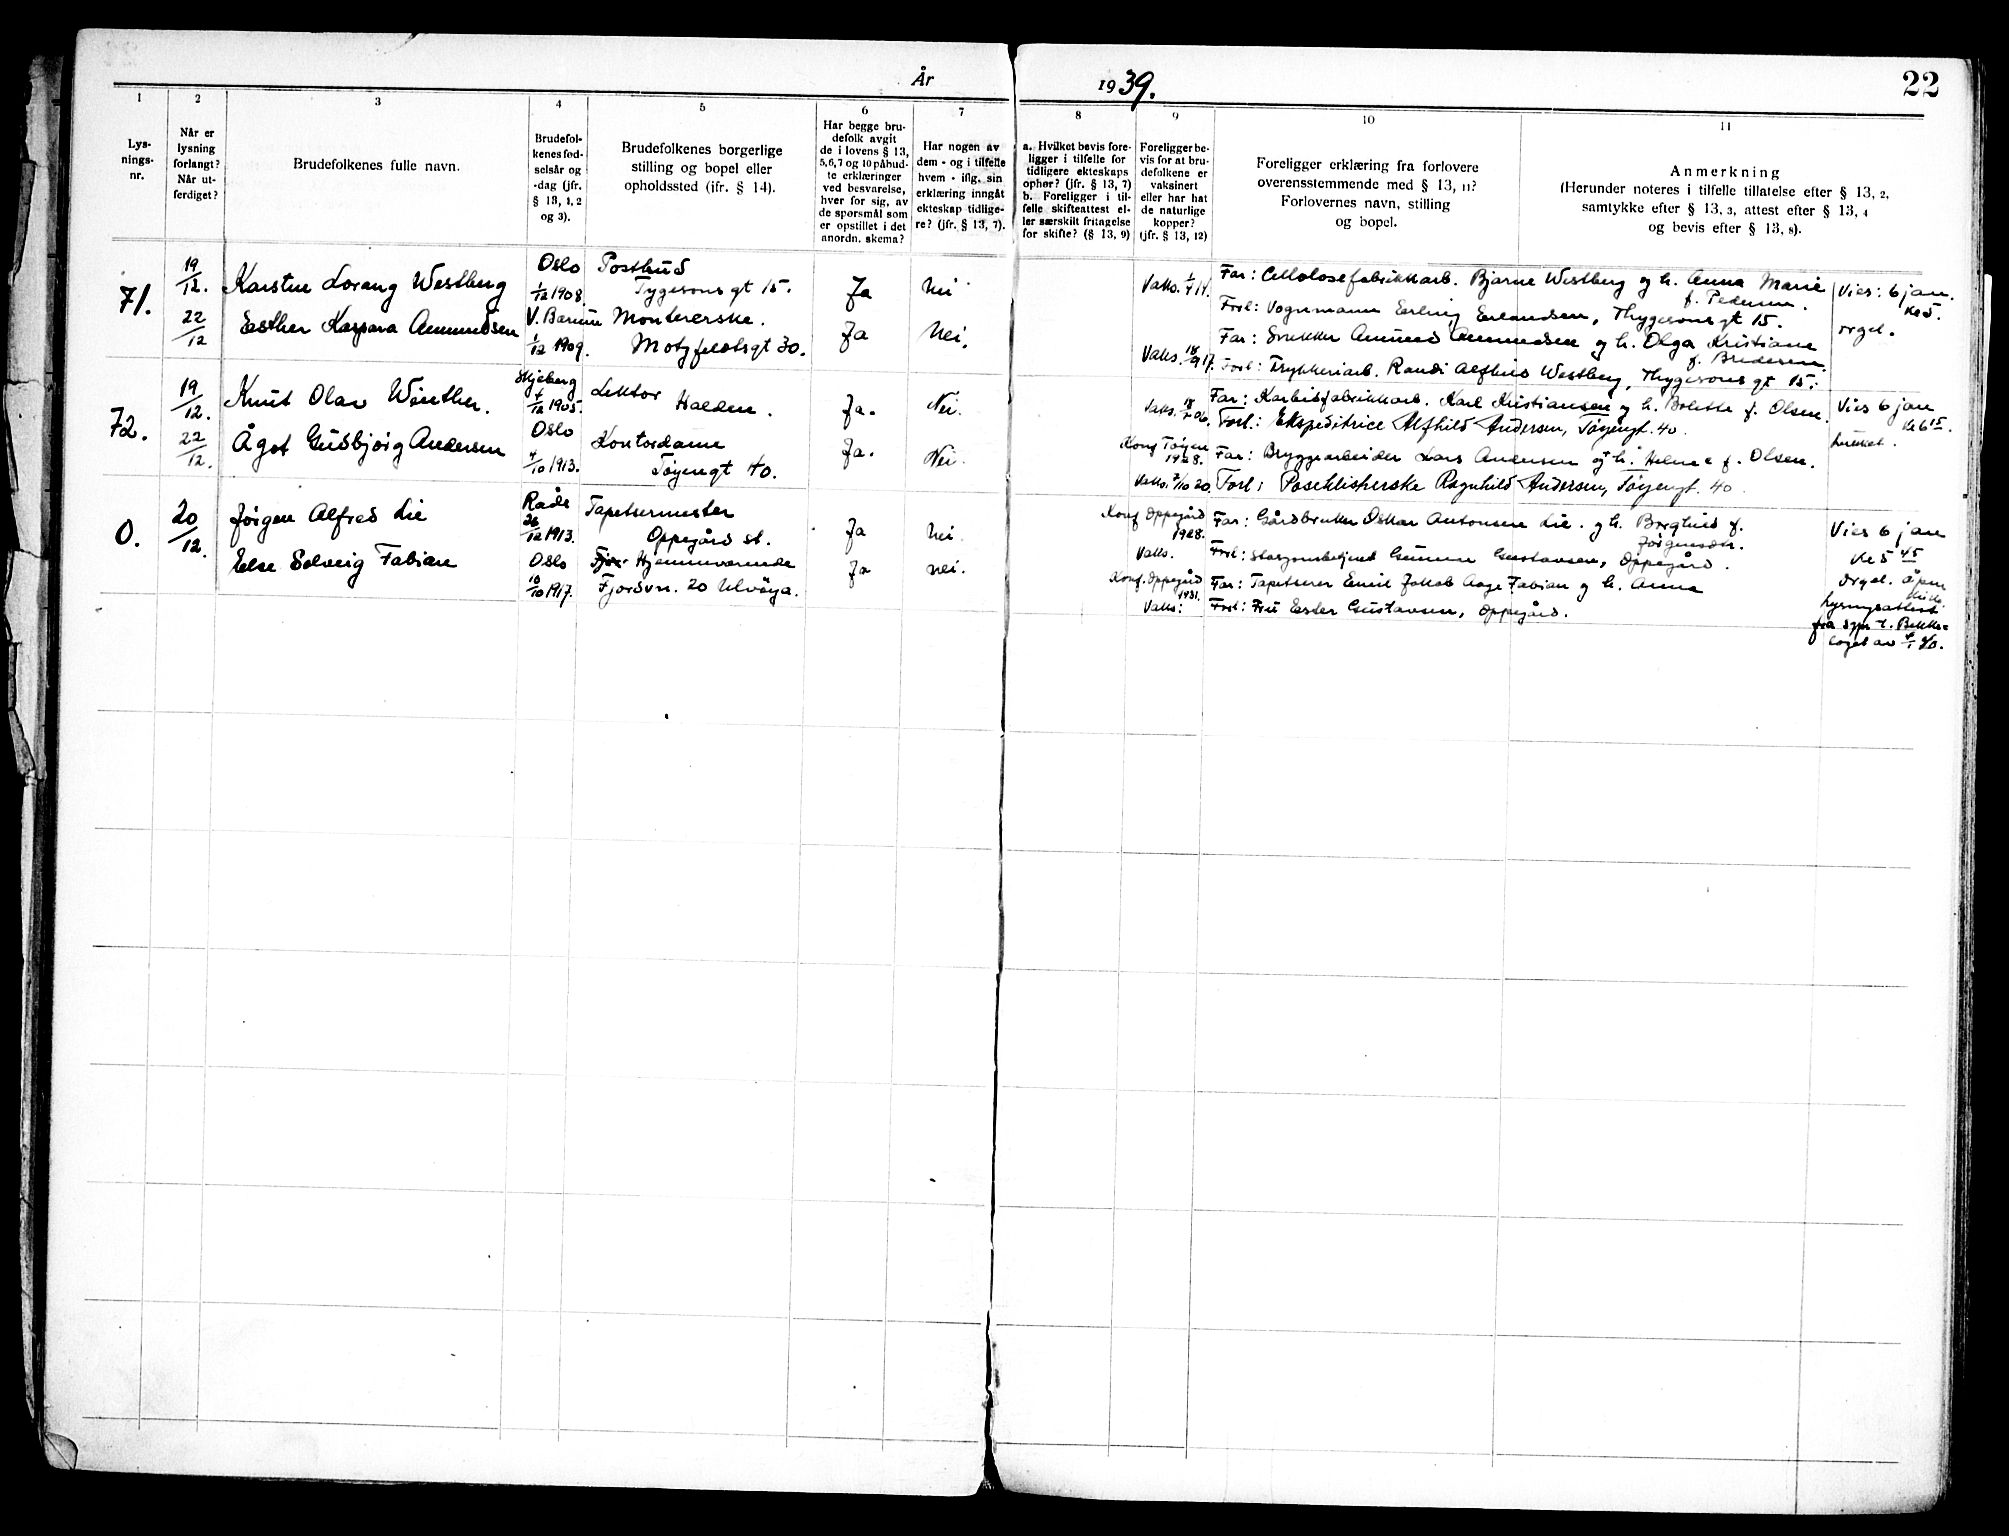 År 1939. 22
1 2 3 4 5 6 7 8 9 10 11
Lys-
nings-
nr.
Når er
lysning
forlangt?
Når ut-
ferdiget?
Brudefolkenes fulle navn.
Brudefol-
kenes fød-
selsår og
-dag (jfr.
§ 13, 1, 2
og 3).
Brudefolkenes borgerlige
stilling og bopel eller
opholdssted (jfr. § 14).
Har begge bru-
defolk avgit
de i lovens § 13,
5, 6, 7 og 10 påbud-
te erklæringer
ved besvarelse,
hver for sig, av
de spørsmål som
er opstillet i det
anordn. skema?
Har nogen av
dem - og i tilfelle
hvem - iflg. sin
erklæring inngåt
ekteskap tidlige-
re? (jfr. § 13, 7).
a. Hvilket bevis fore-
ligger i tilfelle for
tidligere ekteskaps
ophør? (jfr. § 13, 7)
b. Foreligger i til-
felle skifteattest el-
ler særskilt fritagelse
for skifte? (§ 13, 9)
Foreligger be-
vis for at bru-
defolkene er
vaksinert
eller har hat
de naturlige
kopper?
(jfr. § 13, 12)
Foreligger erklæring fra forlovere
overensstemmende med § 13, 11?
Forlovernes navn, stilling
og bopel.
Anmerkning
(Herunder noteres i tilfelle tillatelse efter § 13, 2,
samtykke efter § 13, 3, attest efter § 13, 4
og bevis efter § 13, 8).
71.
19/12.
22/12
Karsten Lorang Westberg
Esther Kaspara Amundsen
Oslo
1/12 1908.
V. Bærum
1/12 1909.
Postbud
Tygesons gt 15.
Montererske.
Motzfeldtsgt 30.
Ja
Ja
Nei
Nei.
Vaks. 1/7 14.
Vaks. 18/9 17.
Far: Cellolosefabrikkarb. Bjarne Westberg og h. Anna Marie
f. Pedersen.
Forl: Vognmann Erling Erlandsen, Thygesons gt 15.
Far: Snekker Amund Amundsen og h. Olga Kristiane
f. Bredesen.
Forl: Trykkeriarb. Randi Alfhild Westberg, Thygesons gt 15.
Vies: 6 jan.
kl 5.
orgel.
72.
19/12.
22/12.
Knut Olav Winther.
Ågot Gudbjørg Andersen
Skjeberg
4/12 1905.
Oslo
4/10 1913.
Lektor
Halden.
Kontordame
Tøyengt 40.
Ja.
Ja.
Nei.
Nei.
Vaks. 18/7 06.
Konf Tøyen
1928.
Vaks. 7/10 20.
Far: Karbidfabrikkarb. Karl Kristiansen og h. Bolette f. Olsen.
Forl: Ekspeditrice Alfhild Andersen, Tøyengt. 40.
Far: Bryggearbeider Lars Andersen og h. Helene f. Olsen.
Forl: Posteklisterske Ragnhild Andersen, Tøyengt. 40.
Vies 6 jan
kl 6 15.
0.
20/12.
Jørgen Alfred Lie
Else Solveig Fabian
Råde
26/12 1913.
Oslo
10/10 1917.
Tapetsermester
Oppegård st.
Hjemmeværende
Fjordvn. 20 Ulvøya.
Ja
Ja
Nei.
nei.
Konf Oppegård
1928.
Vaks.
Konf. Oppegård
1931.
Vaks:
Far: Gårdbruker Oskar Antonsen Lie. og h. Borghild f.
Jørgensdtr.
Forl: Stasjonsbetjent Gunnar Gustavsen, Oppegård.
Far: Tapetserer Emil Jakob Aage Fabian og h. Anna
Forl: Fru Ester Gustavsen, Oppegård.
Vies 6 jan
kl 5 45
orgel. åpen
kirke.
Lysningsattest
fra spr. t. Bekke-
laget av 4/1 40.